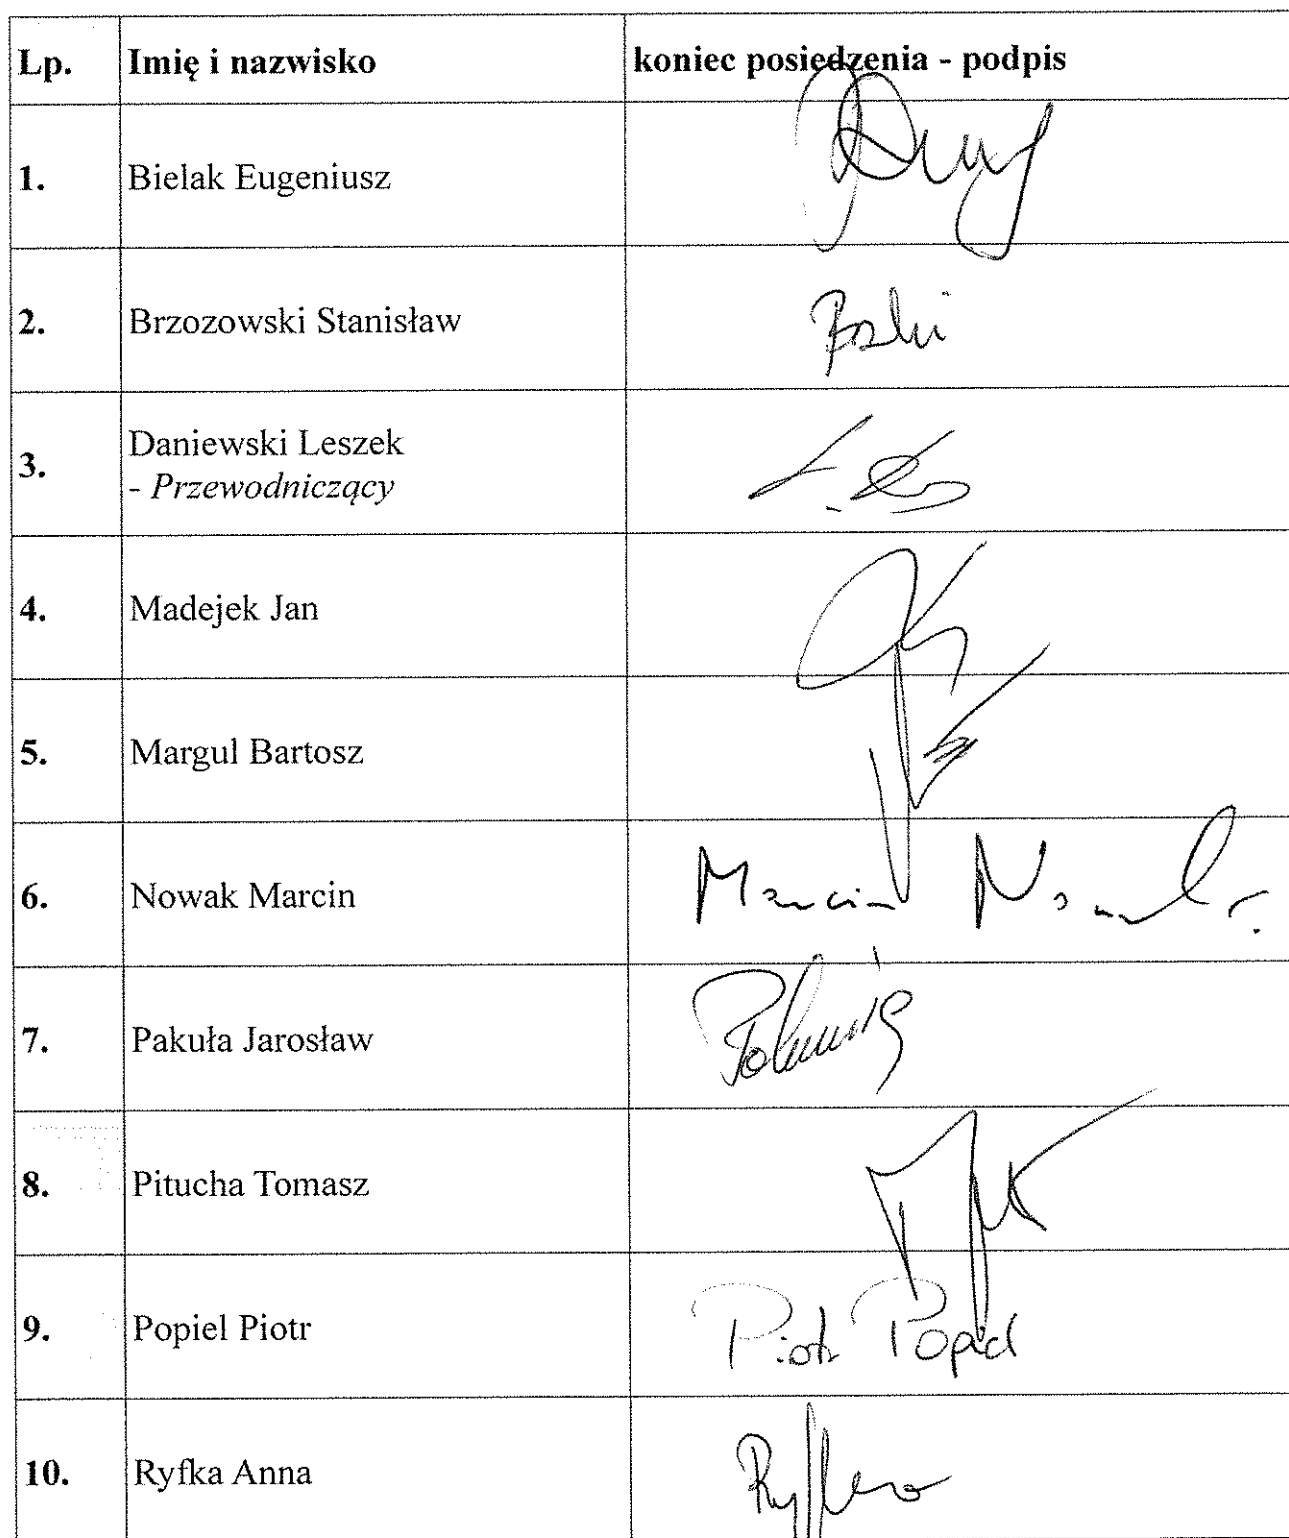 Lp. Imię i nazwisko koniec posiedzenia - podpis
1. Bielak Eugeniusz
2. Brzozowski Stanisław
3. Daniewski Leszek
- Przewodniczący
4. Madejek Jan
5. Margul Bartosz
6. Nowak Marcin Marcin Nowak
7. Pakuła Jarosław
8. Pitucha Tomasz
9. Popiel Piotr Piotr Popiel
10. Ryfka Anna